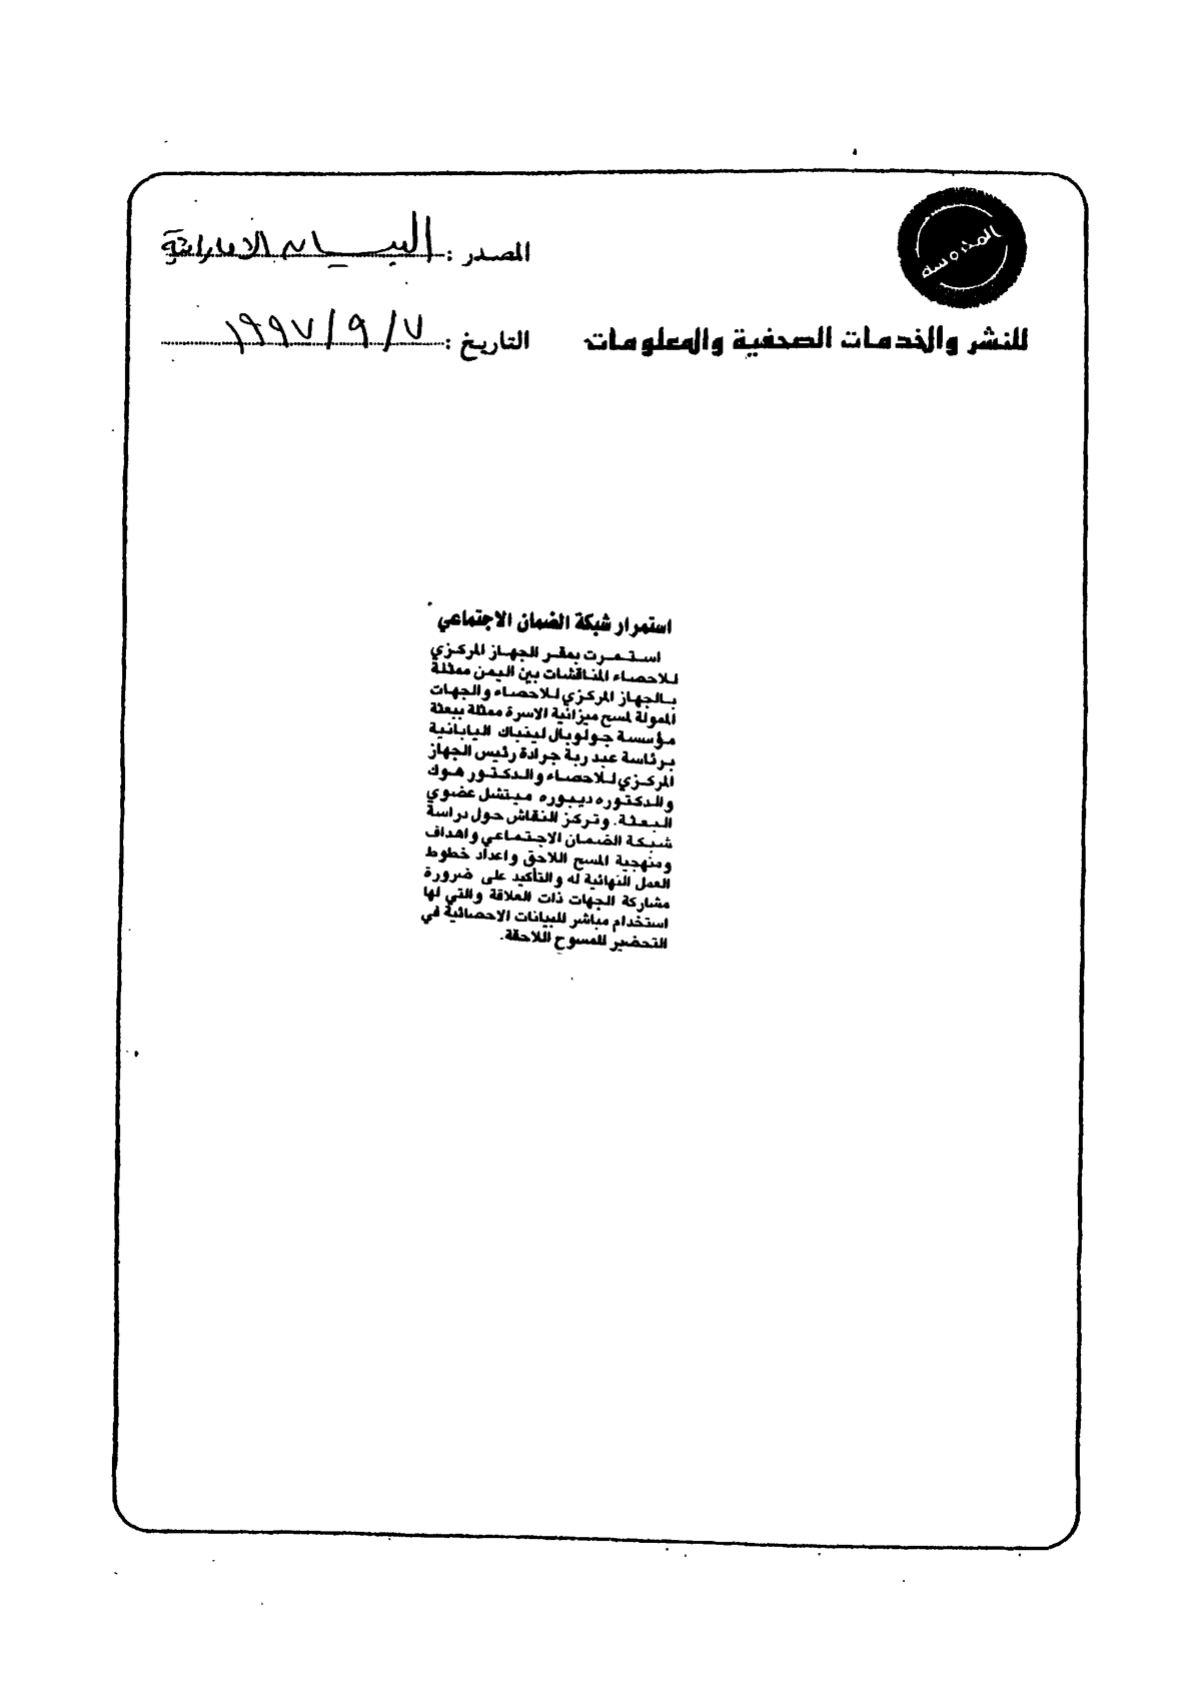 المحروسة
المصدر : البيان الاماراتية
للنشر والخدمات الصحفية والمعلومات
التاريخ : ٧ / ٩ / ١٩٩٧
استمرار شبكة الضمان الاجتماعي
استمرت بمقر الجهاز المركزي
للاحصاء المناقشات بين اليمن ممثلة
بالجهاز المركزي للاحصاء والجهات
الممولة لمسح ميزانية الاسرة ممثلة ببعثة
مؤسسة جولوبال لينباك اليابانية
برئاسة عبد ربة جرادة رئيس الجهاز
المركزي للاحصاء والدكتور هوك
والدكتوره ديبوره ميتشل عضوي
البعثة. وتركز النقاش حول دراسة
شبكة الضمان الاجتماعي واهداف
ومنهجية المسح اللاحق واعداد خطوط
العمل النهائية له والتأكيد على ضرورة
مشاركة الجهات ذات العلاقة والتي لها
استخدام مباشر للبيانات الاحصائية في
التحضير للمسوح اللاحقة.